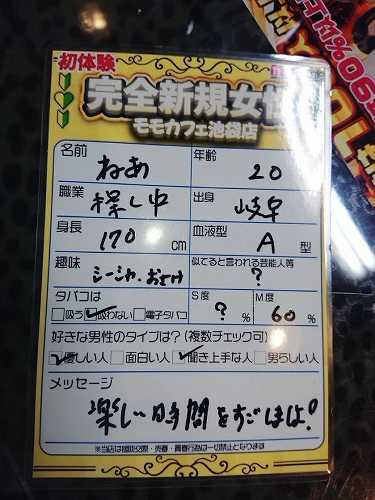 初体験
完全新規女性
モモカフェ池袋店
名前 ねあ 年齢 20
職業 探し中 出身 岐阜
身長 170 cm 血液型 A 型
趣味 シーシャ、およけ 似てると言われる芸能人等 ?
タバコは S度 M度
□吸う □吸わない □電子タバコ ? % 60 %
好きな男性のタイプは?(複数チェック可)
□優しい人 □面白い人 □聞き上手な人 □男らしい人
メッセージ
楽しい時間をすごしましょ!
※当店は援助交際・売春・買春行為は一切禁止となります